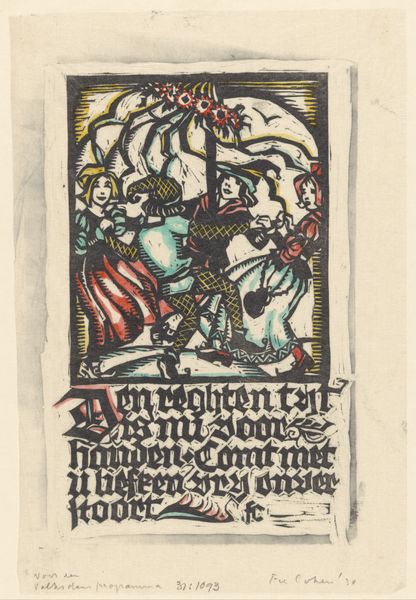 Den reghten tijt
is nu voor
handen · Comt met
u liefken vry onver
stoort fc
Voor een
Volksdans programma 37:1093 Fré Cohen '30